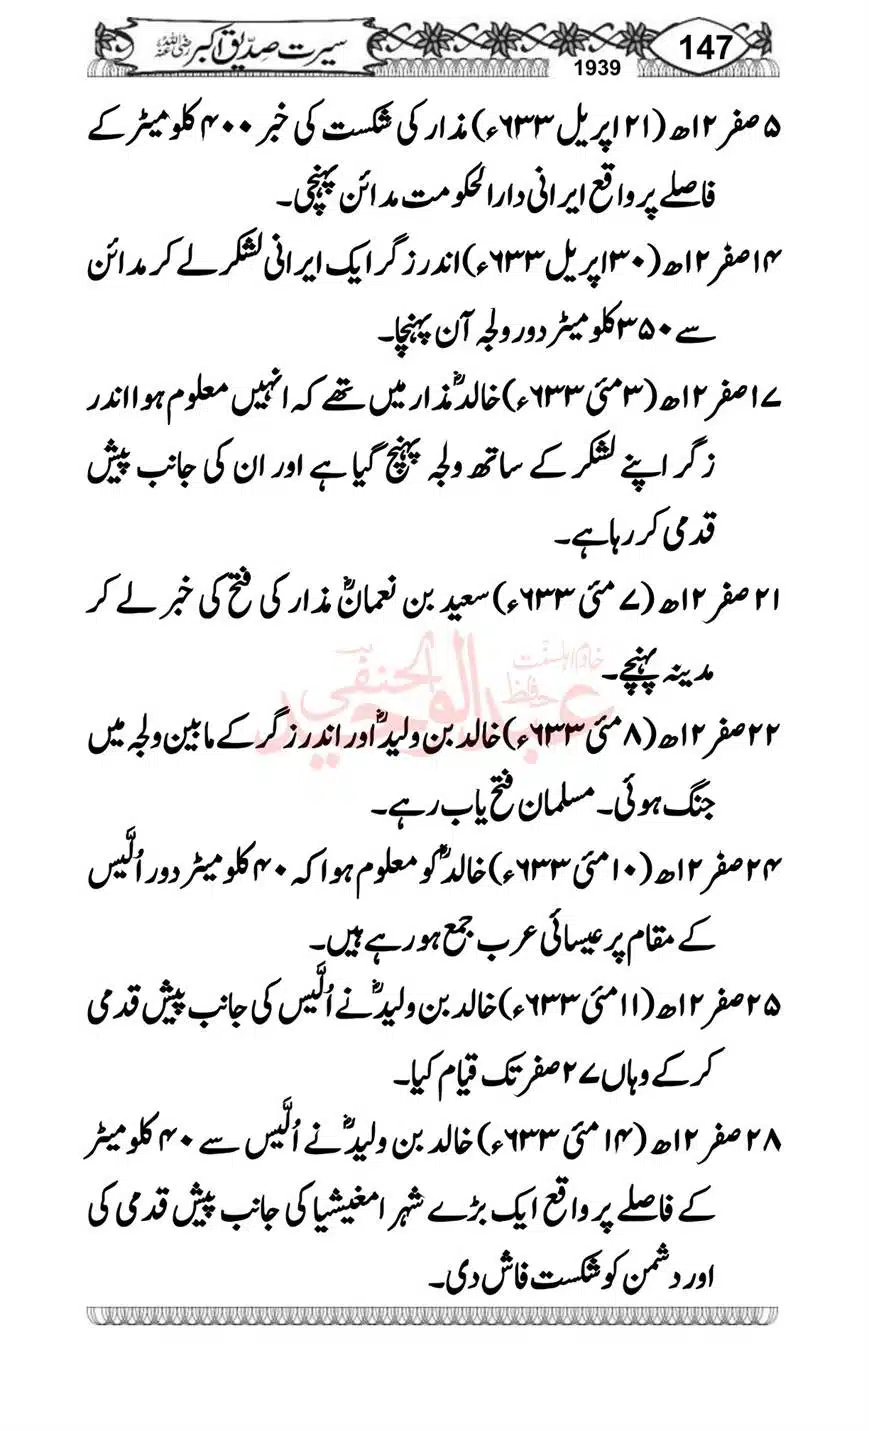 سیرت صدیق اکبر رضی اللہ عنہ
147
1939
۵ صفر ۱۲ھ (۲۱ اپریل ۶۳۳ء) مذار کی شکست کی خبر ۴۰۰ کلومیٹر کے
فاصلے پر واقع ایرانی دارالحکومت مدائن پہنچی۔
۱۴ صفر ۱۲ھ (۳۰ اپریل ۶۳۳ء) اندرزگر ایک ایرانی لشکر لے کر مدائن
سے ۳۵۰ کلومیٹر دور ولجہ آن پہنچا۔
۱۷ صفر ۱۲ھ (۳ مئی ۶۳۳ء) خالدؓ مذار میں تھے کہ انہیں معلوم ہوا اندر
زگر اپنے لشکر کے ساتھ ولجہ پہنچ گیا ہے اور ان کی جانب پیش
قدمی کر رہا ہے۔
۲۱ صفر ۱۲ھ (۷ مئی ۶۳۳ء) سعید بن نعمانؓ مذار کی فتح کی خبر لے کر
مدینہ پہنچے۔
خادم اہلسنت حافظ عبدالوحید الحنفی
۲۲ صفر ۱۲ھ (۸ مئی ۶۳۳ء) خالد بن ولیدؓ اور اندرزگر کے مابین ولجہ میں
جنگ ہوئی۔ مسلمان فتح یاب رہے۔
۲۴ صفر ۱۲ھ (۱۰ مئی ۶۳۳ء) خالدؓ کو معلوم ہوا کہ ۴۰ کلومیٹر دور اُلَّیس
کے مقام پر عیسائی عرب جمع ہو رہے ہیں۔
۲۵ صفر ۱۲ھ (۱۱ مئی ۶۳۳ء) خالد بن ولیدؓ نے اُلَّیس کی جانب پیش قدمی
کر کے وہاں ۲۷ صفر تک قیام کیا۔
۲۸ صفر ۱۲ھ (۱۴ مئی ۶۳۳ء) خالد بن ولیدؓ نے اُلَّیس سے ۴۰ کلومیٹر
کے فاصلے پر واقع ایک بڑے شہر امغیشیا کی جانب پیش قدمی کی
اور دشمن کو شکست فاش دی۔